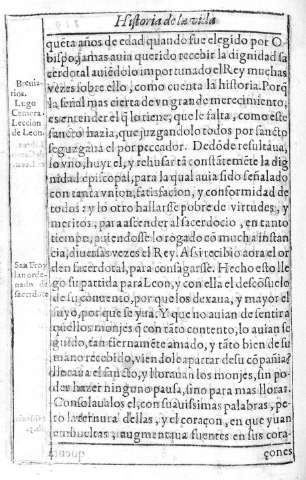 Historia de la vida
quēta años de edad quando fue elegido por O-
bispo, jamas auia querido recebir la dignidad sa
cerdotal auiēdolo importunado el Rey muchas
vezes sobre ello, como cuenta la historia. Porq̄
la señal mas cierta de vn gran de merecimiento,
es entender el q̄ lo tiene, que le falta, como este
sancto hazia, que juzgandolo todos por sancto
se juzgaua el por peccador. De dōde resultaua,
lo vno, huyr el, y rehusar tā constātemēte la dig
nidad episcopal, para la qual auia sido señalado
con tanta vnion, satisfacion, y conformidad de
todos: y lo otro hallarsse pobre de virtudes, y
meritos, para ascender al sacerdocio, en tanto
tiempo, auiendosse lo rogado cō mucha instan
cia, diuersas vezes el Rey. Assi recibio aora el or
den sacerdotal, para consagrarse. Hecho esto lle
go su partida para Leon, y con ella el descōsuelo
de su conuento, por que los dexaua, y mayor el
suyo, por que se yua. Y que no auian de sentir a
quellos monjes q̄ con tāto contento, lo auian se
guido, tan tiernamēte amado, y tāto bien de su
mano recebido, viendole apartar de su cōpañia?
lloraua el sancto, y llorauan los monjes, sin po-
der hazer ninguno pausa, sino para mas llorar.
Consolaualos el, con suauissimas palabras, pe-
ro la ternura dellas, y el coraçon, en que yuan
embueltas, augmentaua fuentes en sus cora-
çones
Breuia-
rios.
Lugo
Çamora.
Leccion
de Leon.
San Froy
lan orde-
nado de
sacerdote